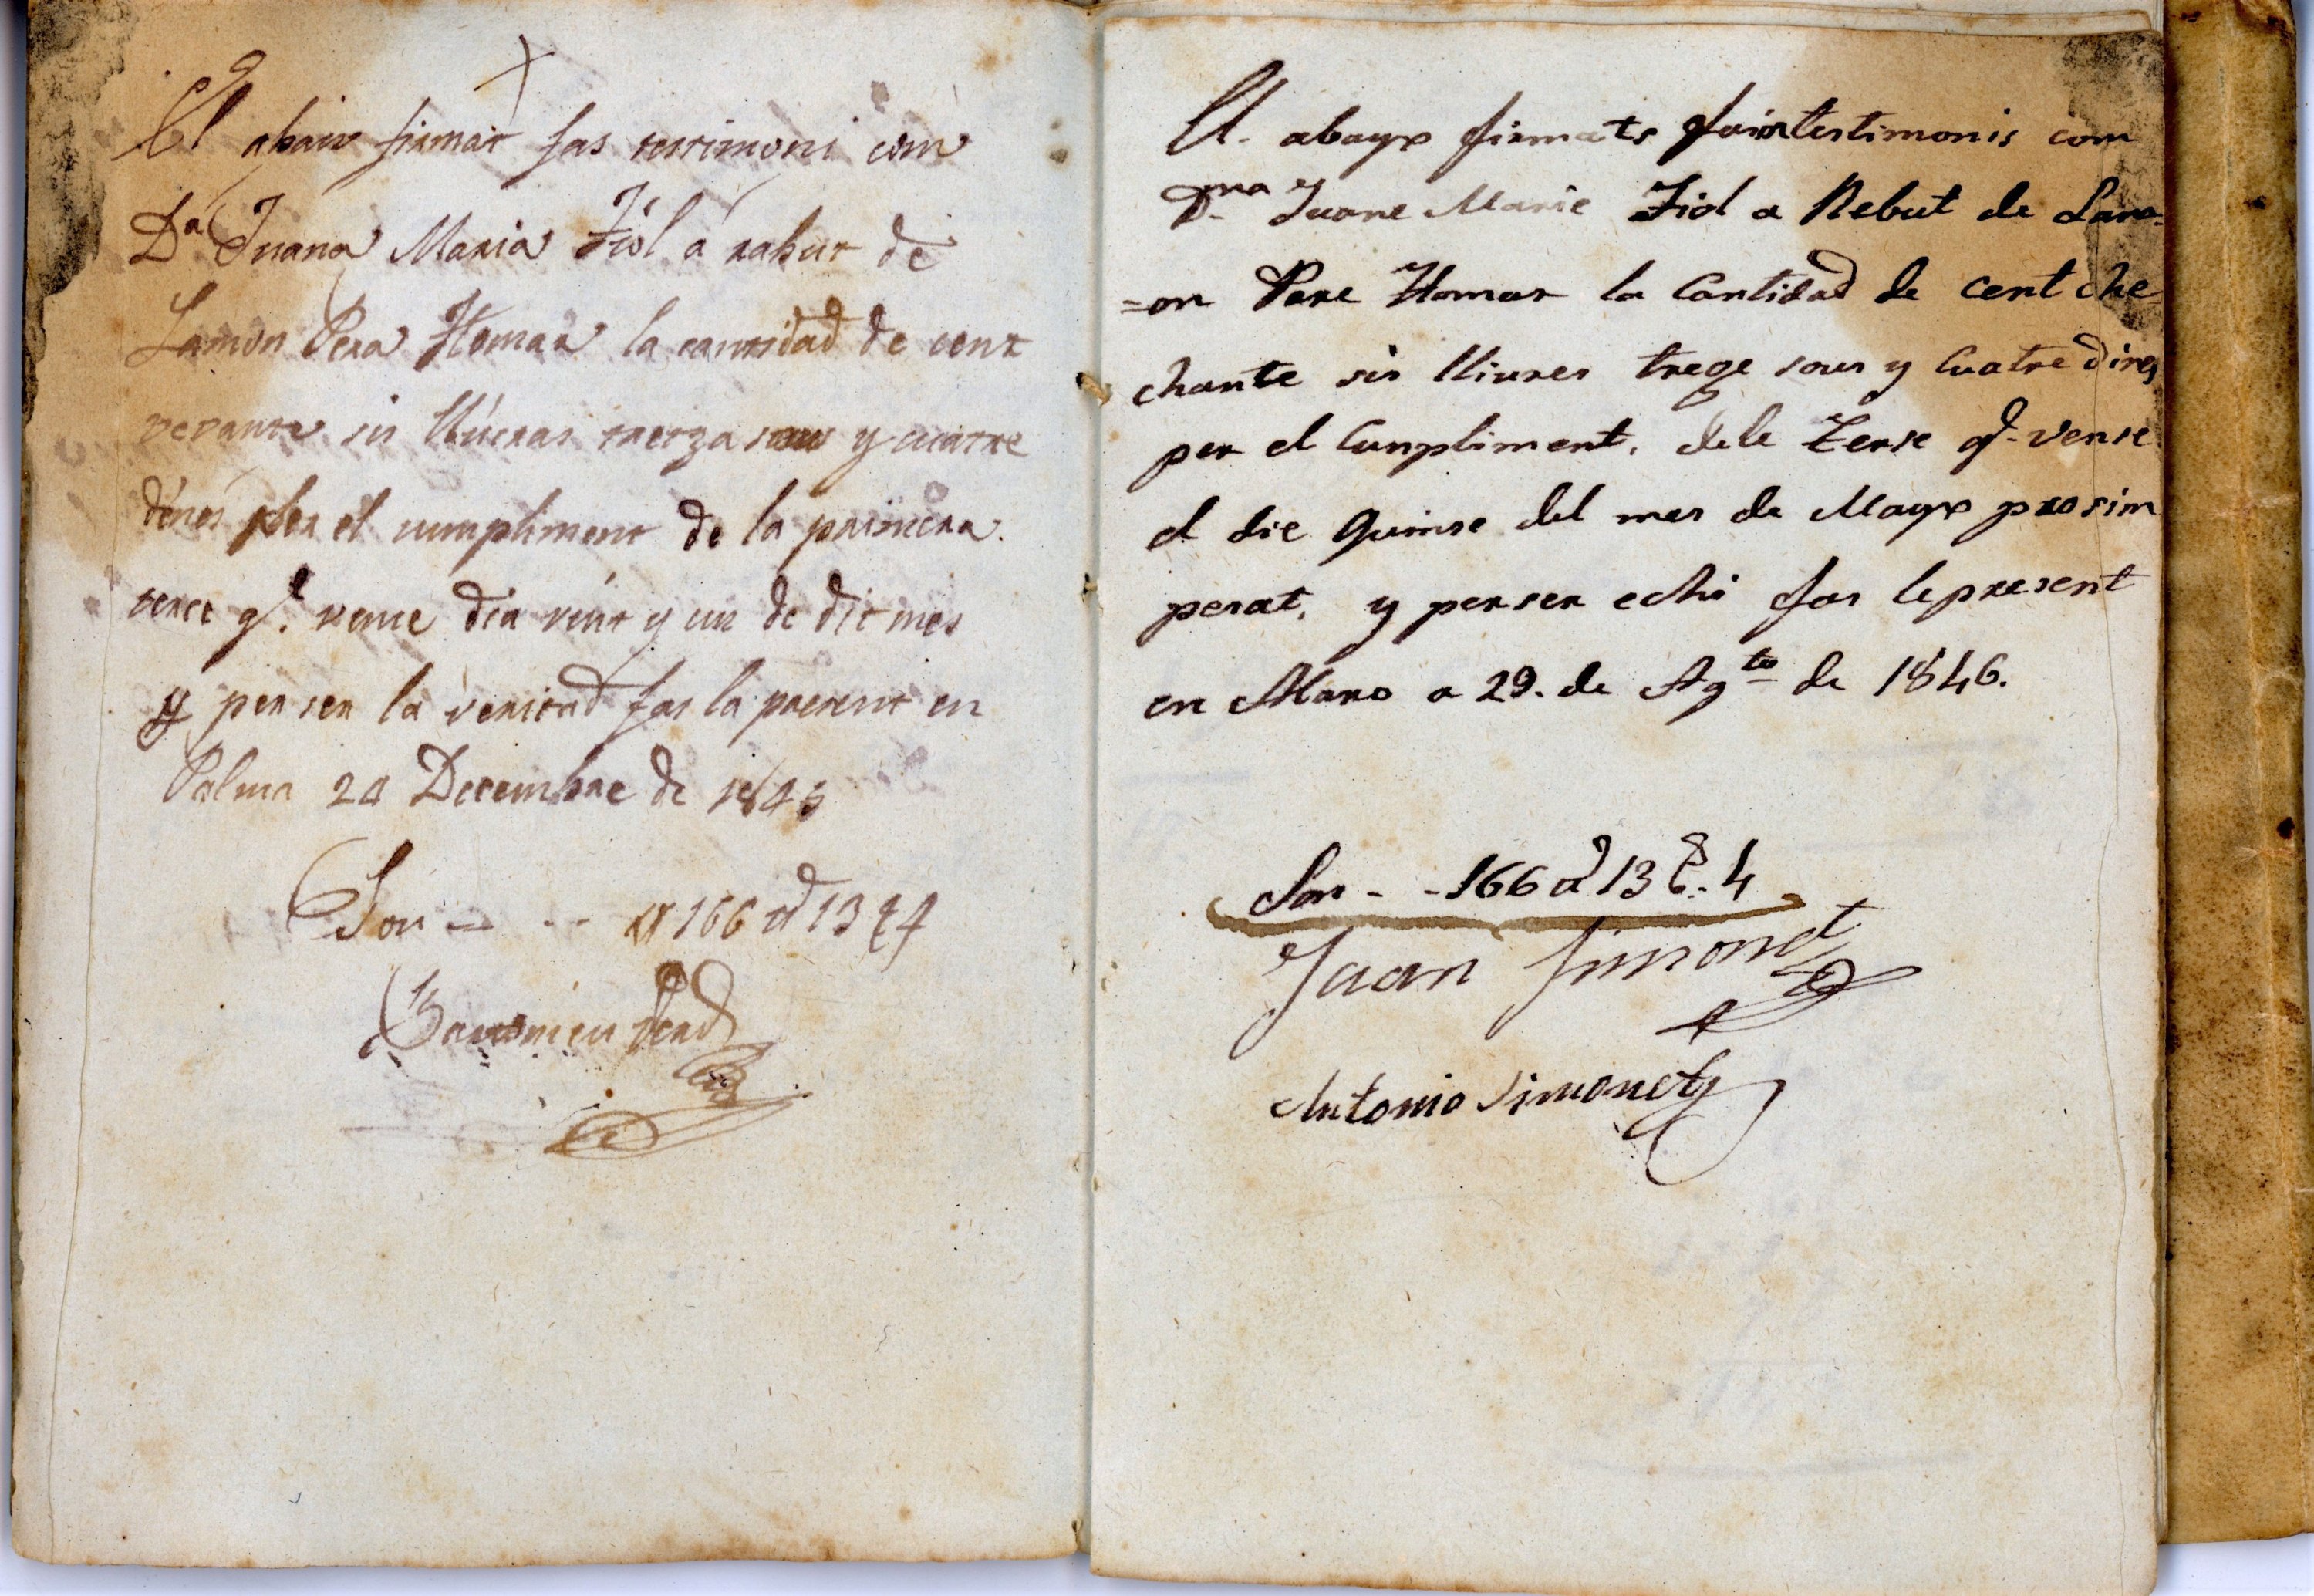 El abaix firmat fas testimoni com
Dª Juana Maria Fiol á rabut de
Lamon Pera Homar la cantidad de cent
xexanta sis lliuras tretza sous y cuatre
dines per el cumpliment de la primera
terce qe. vence dia vint y un de dit mes
y per ser la veritad fas la present en
Palma 24 Decembre de 1845
Son 166 # 13 4
Bartomeu
El. abayx firmats testimonis com
Dña Juane Marie Fiol a Rebut de Lam=
=on Pere Homar la Cantidad de cent che
chante sis lliures trege sous y Cuatre dines
per el Cumpliment. dele Terse qe. vense
el die Quinse del mes de Mayx prosim
pasat, y per ser echi fas le present
en Alaro a 29. de Agto de 1846.
Son - - 166 # 13 4
Juan Simonet
Antonio Simonet